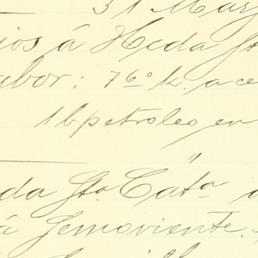 31 Mar
ios á Hcda Sta
abor: 76º k. a ce
1 b petroleo en
"
da Sta Catª
á Semoviente.